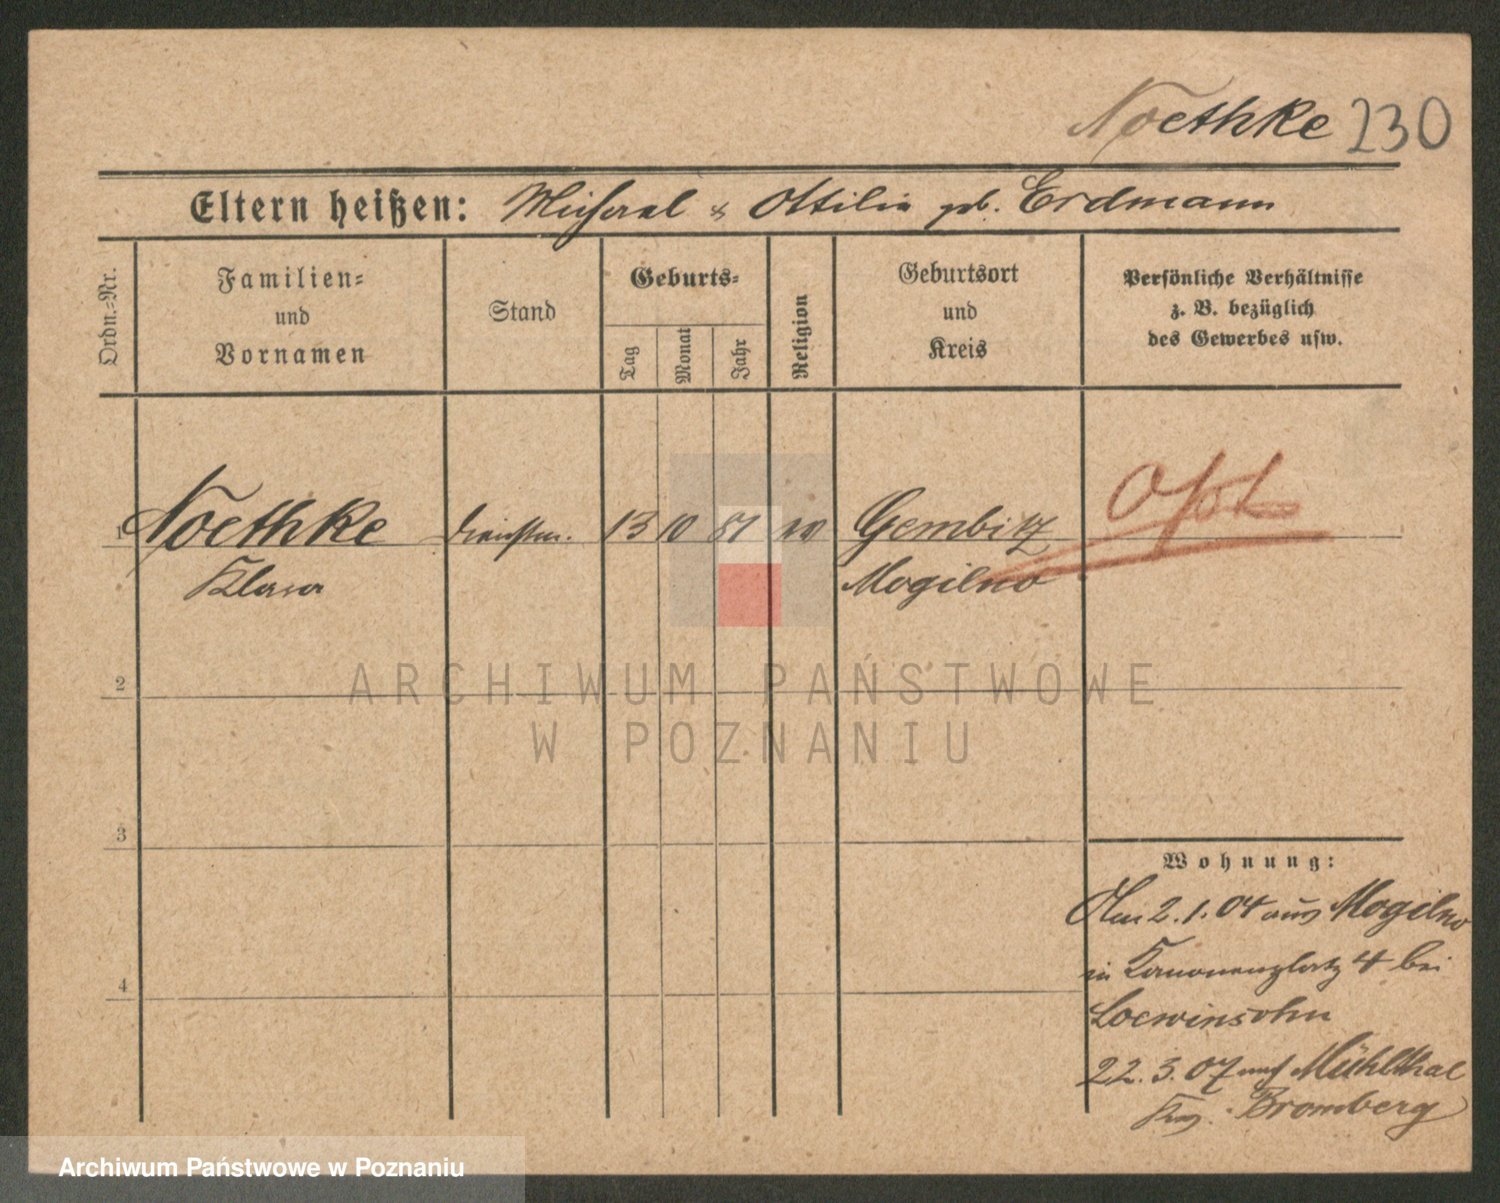 Noethke 230
Eltern heißen: Michael & Ottilie geb. Erdmann
Ordn.=Nr.
Familien=
und
Vornamen
Stand
Geburts=
Tag
Monat
Jahr
Religion
Geburtsort
und
Kreis
Persönliche Verhältnisse
z. B. bezüglich
des Gewerbes usw.
1 Noethke
Klara
Dienstm. 13 10 81 ev
Gembitz
Mogilno
2
ARCHIWUM PAŃSTWOWE
W POZNANIU
3
Wohnung:
2.1.04 aus Mogilno
in Kanonenplatz 4 bei
Loewinsohn
4
22.3.07 nach Mühlthal
Bromberg
Archiwum Państwowe w Poznaniu